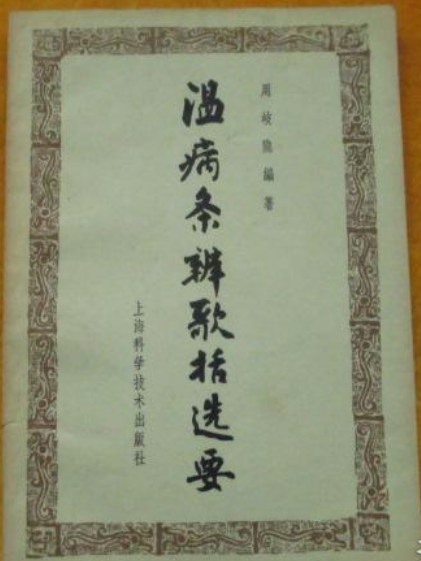 周岐隐編著
温病条辨歌括选要
上海科学技术出版社